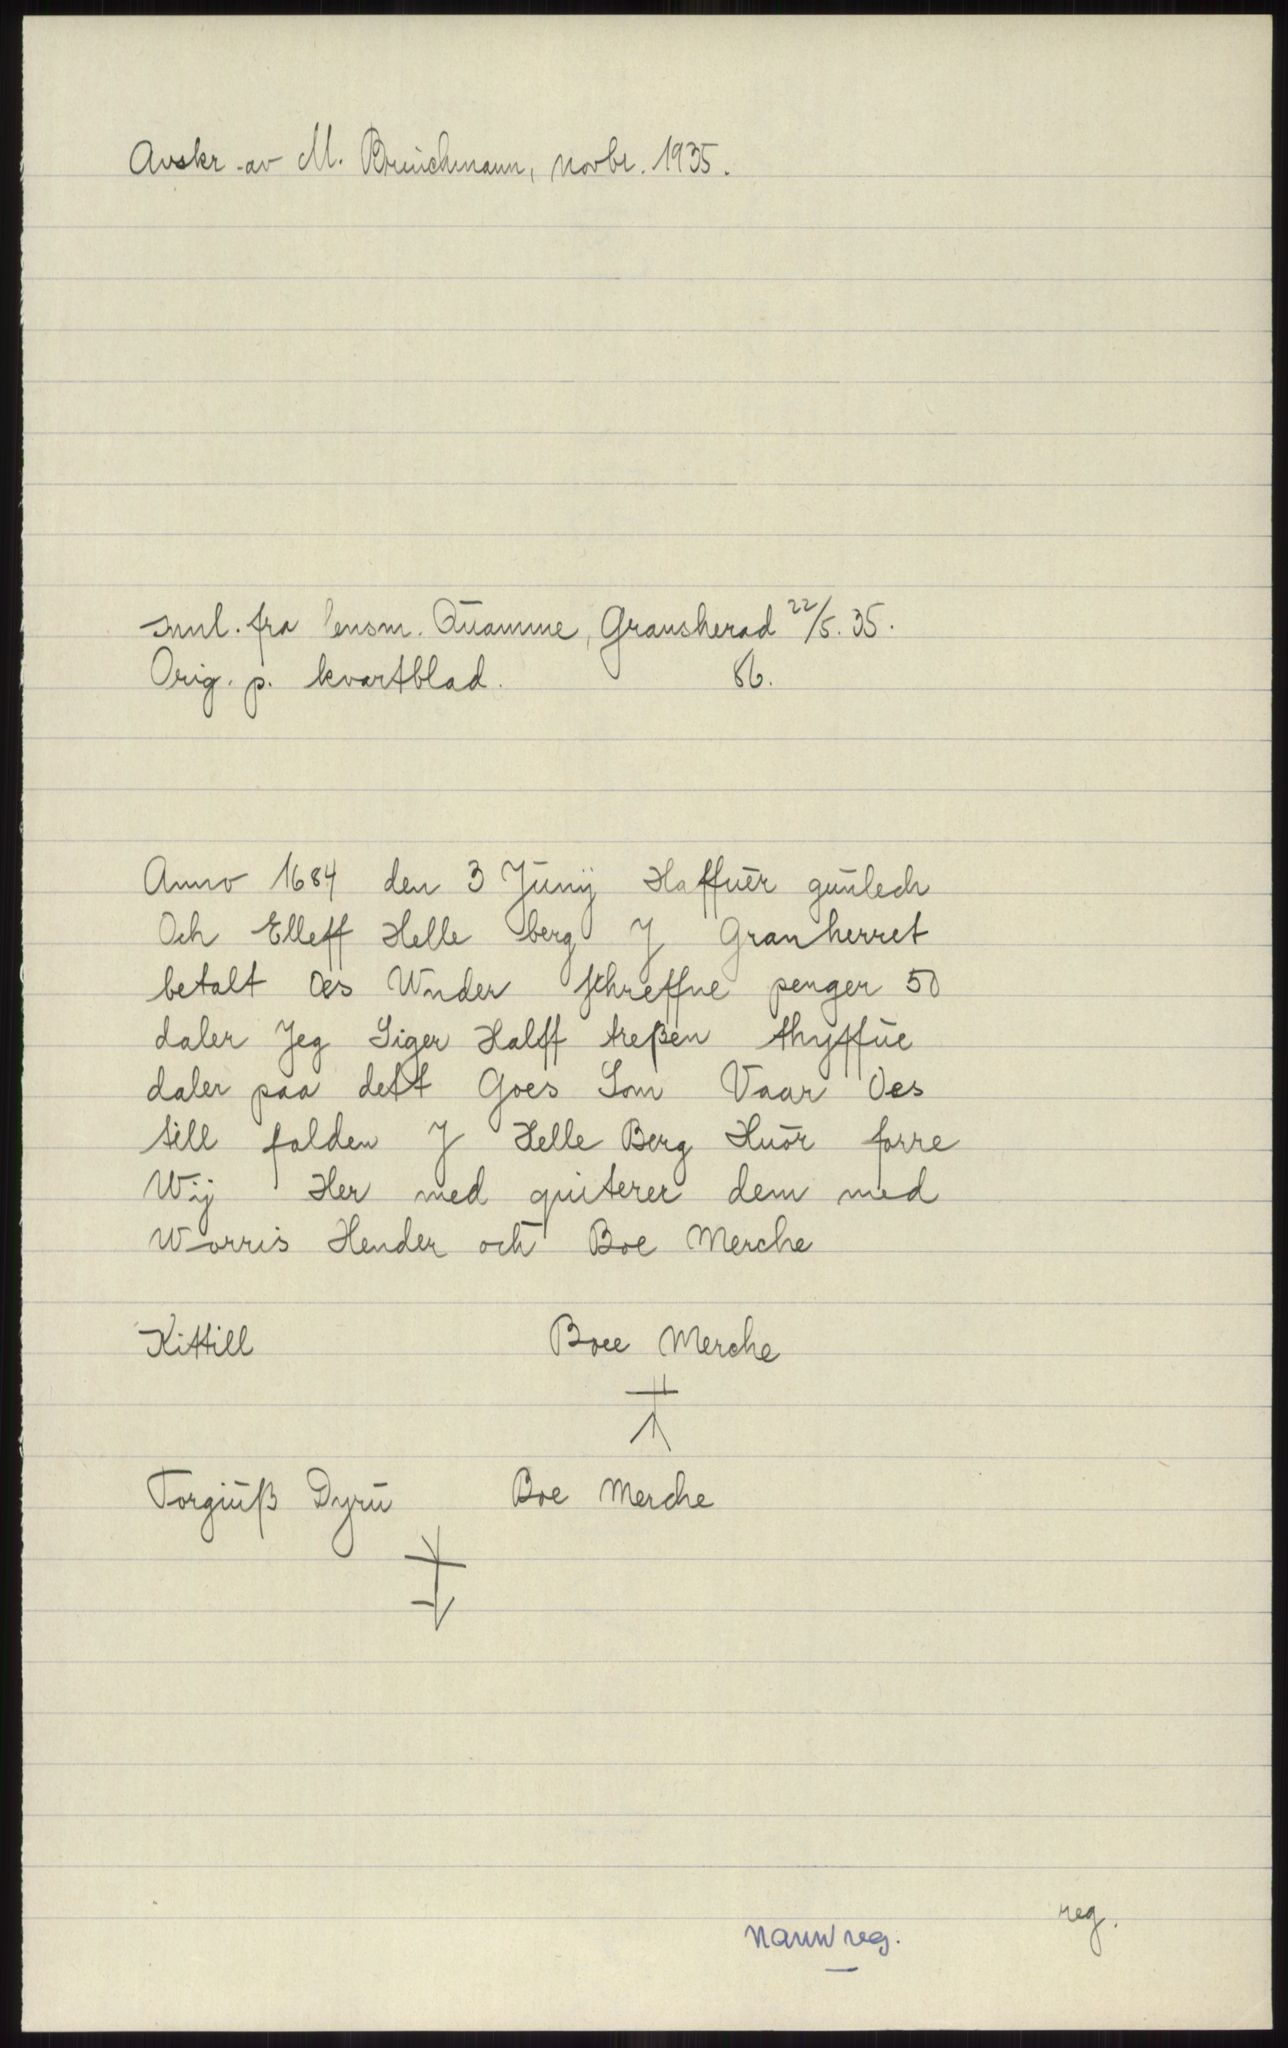 Avskr. av M. Bruichmann, novbr. 1935.
innl. fra lensm. Quamme, Gransherad 22/5. 35.
Orig. p. kvartblad. 86.
Anno 1684 den 3 Junij Haffuer gunlech
Och Elleff Helle berg J Granherret
betalt Oes Wnder schreffne penger 50
daler Jeg Siger Halff treßen thyffue
daler paa dett Goes Som Vaar Oes
till falden J Helle Berg Huor forre
Wij Her med quiterer dem med
Worris Hender och Boe Merche
Kittill Boee Merche
Torgiuß Dyru Boe Merche
navnreg.
reg.